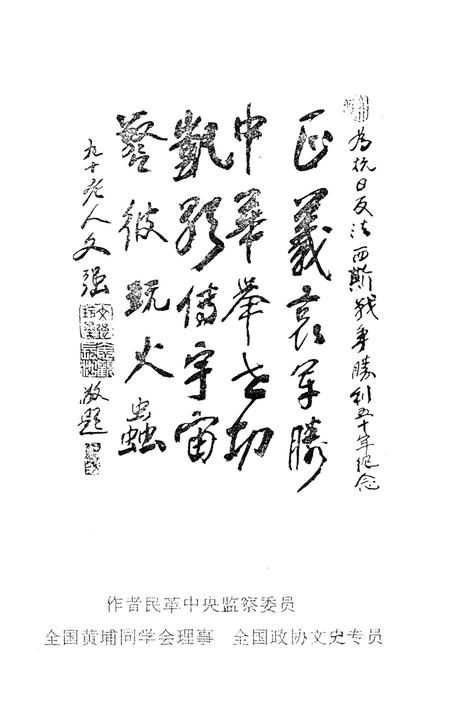 为抗日反法西斯战争勝利五十年纪念
正義哀军勝
中華举世功
凱歌傳宇宙
警彼玩火蟲
九十老人文强
敬题
作者民革中央监察委员
全国黄埔同学会理事 全国政协文史专员